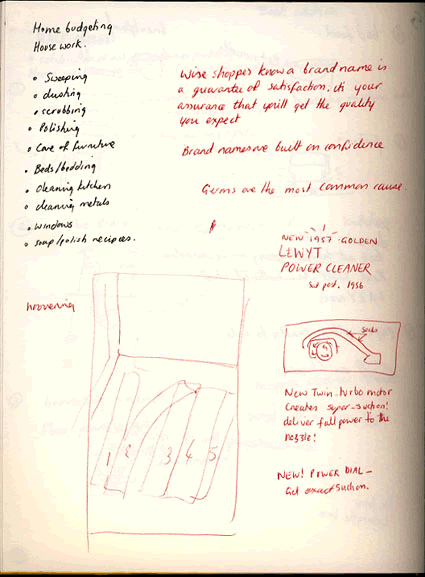 Home budgeting
House work.
• Sweeping
• dusting
• scrubbing
• Polishing
• Care of furniture
• Beds/bedding
• Cleaning kitchen
• cleaning metals
• windows
• soap/polish recipies.
Wise shoppes know a brand name is
a guarantee of satisfaction. its your
assurance that you'll get the quality
you expect
Brand names are built on confidence
Germs are the most common cause.
NEW 1957 GOLDEN
LEWYT
POWER CLEANER
Sat post. 1956
hoovering
1 2 3 4 5
sucks
New Twin-turbo motor
creates super-suction!
deliver full power to the
nozzle!
NEW! POWER DIAL -
Get exact suction.